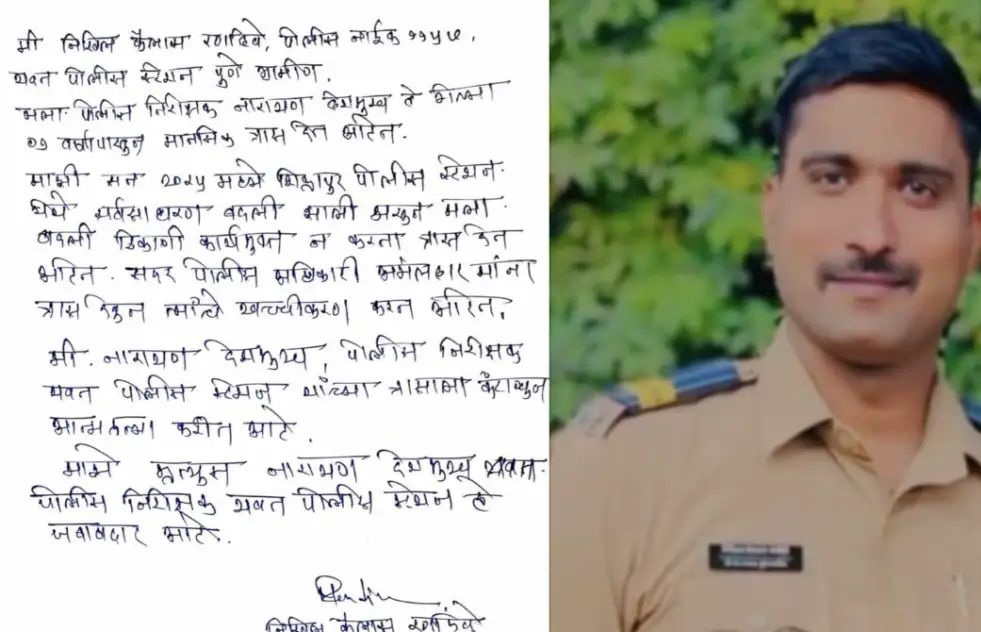 मी निखिल कैलास रणदिवे, पोलीस नाईक
यवत पोलीस स्टेशन पुणे ग्रामीण.
मला पोलीस निरिक्षक नारायण देशमुख हे गेल्या
०१ वर्षापासुन मानसिक त्रास देत आहेत.
माझी सन २०२५ मध्ये शिक्रापुर पोलीस स्टेशन
येथे सर्वसाधारण बदली झाली असुन मला
बदली ठिकाणी कार्यमुक्त न करता त्रास देत
आहेत. सदर पोलीस अधिकारी अंमलदार यांना
त्रास देवुन त्यांचे खच्चीकरण करत आहेत.
मी. नारायण देशमुख, पोलीस निरिक्षक
यवत पोलीस स्टेशन यांच्या त्रासाला कंटाळुन
आत्महत्या करीत आहे.
माझे मृत्युस नारायण देशमुख
पोलीस निरिक्षक यवत पोलीस स्टेशन हे
जबाबदार आहे.
निखिल कैलास रणदिवे